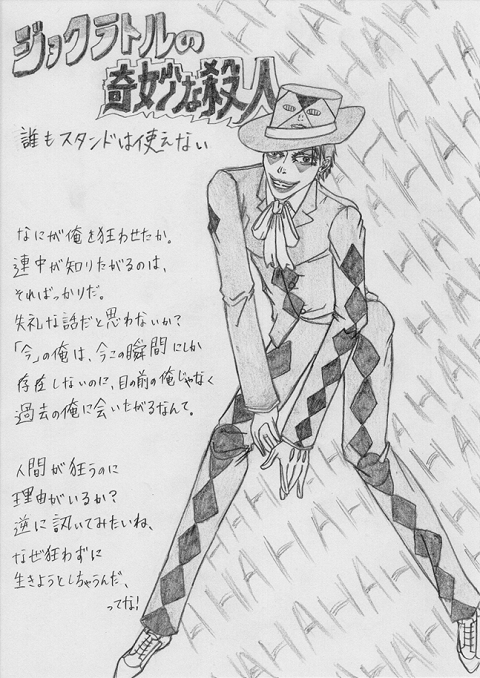 ジョクラトルの
奇妙な殺人
誰もスタンドは使えない
なにが俺を狂わせたか。
連中が知りたがるのは、
そればっかりだ。
失礼な話だと思わないか?
「今」の俺は、今この瞬間にしか
存在しないのに、目の前の俺じゃなく
過去の俺に会いたがるなんて。
人間が狂うのに
理由がいるか?
逆に訊いてみたいね、
なぜ狂わずに
生きようとしちゃうんだ、
ってな!
HAHAHAHAHAHA